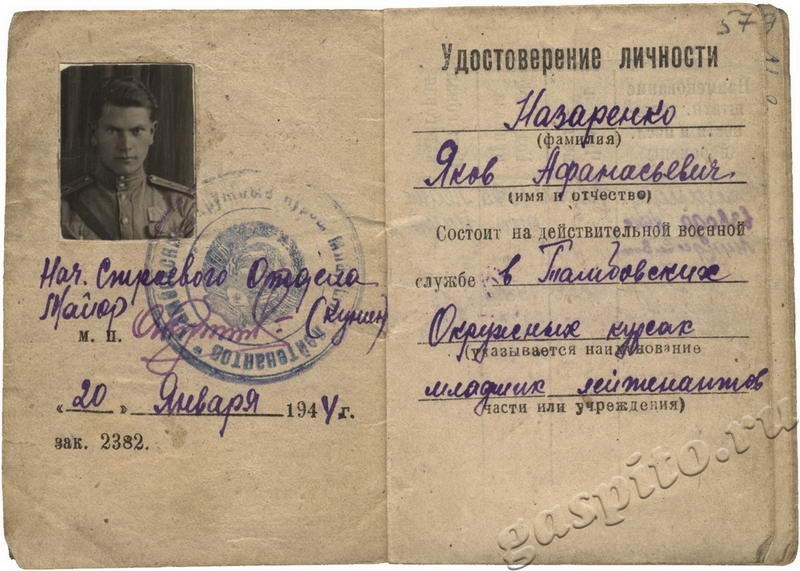 Нач. Строевого Отдела
Майор (Кунен)
м. п.
"20" Января 1944 г.
зак. 2382.
579
Удостоверение личности
Назаренко
(фамилия)
Яков Афанасьевич
(имя и отчество)
Состоит на действительной военной
службе в Тамбовских
Окружных курсах
(указывается наименование
младших лейтенантов
части или учреждения)
gaspito.ru